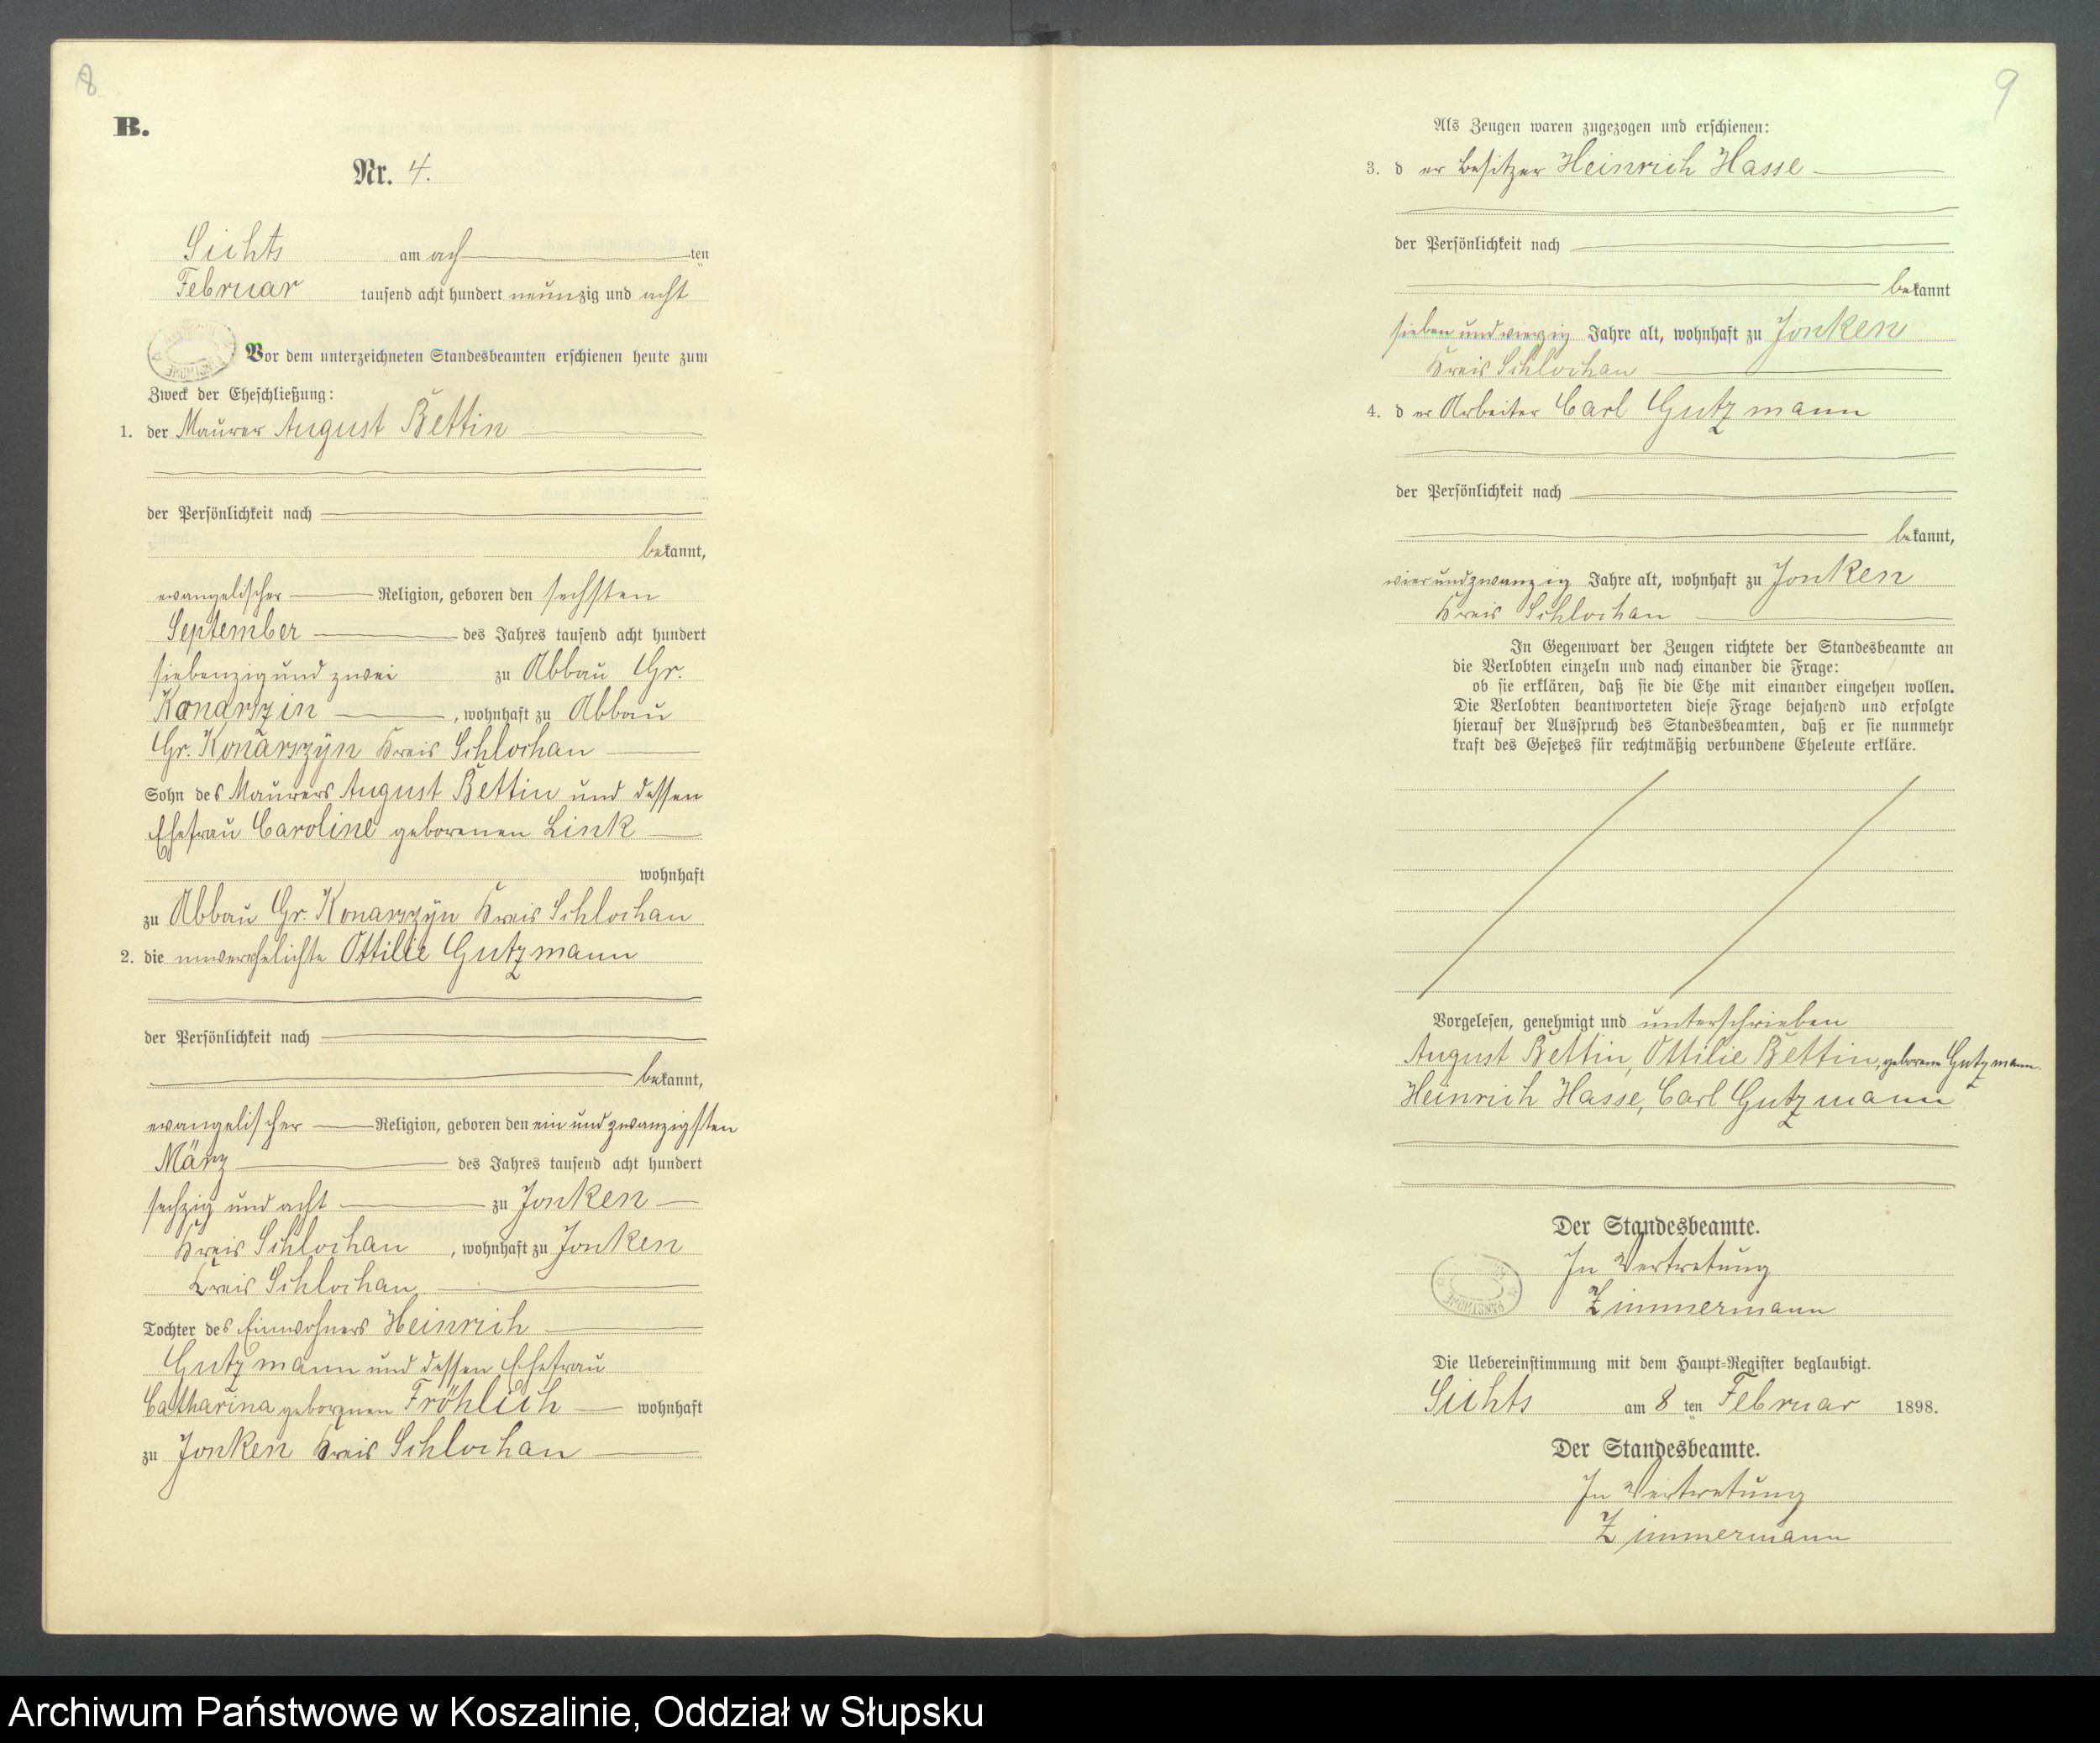 8
B.
Nr. 4.
Sichts am ach ten
Februar tausend acht hundert neunzig und acht
Vor dem unterzeichneten Standesbeamten erschienen heute zum
Zweck der Eheschließung:
1. der Maurer August Bettin
der Persönlichkeit nach
bekannt,
evangelischer Religion, geboren den sechsten
September des Jahres tausend acht hundert
siebenzig und zwei zu Abbau Gr.
Konarszin, wohnhaft zu Abbau
Gr. Konarszyn Kreis Schlochau
Sohn des Maurers August Bettin und dessen
Ehefrau Caroline geborenen Link
wohnhaft
zu Abbau Gr. Konarszyn Kreis Schlochau
2. die unverehelichte Ottilie Gutzmann
der Persönlichkeit nach
bekannt,
evangelischer Religion, geboren den ein und zwanzigsten
März des Jahres tausend acht hundert
sechzig und acht zu Jonken
Kreis Schlochau, wohnhaft zu Jonken
Kreis Schlochau
Tochter des Einwohners Heinrich
Gutzmann und dessen Ehefrau
Catharina geborenen Fröhlich wohnhaft
zu Jonken Kreis Schlochau
9
Als Zeugen waren zugezogen und erschienen:
3. der Besitzer Heinrich Hasse
der Persönlichkeit nach
bekannt
sieben und vierzig Jahre alt, wohnhaft zu Jonken
Kreis Schlochau
4. der Arbeiter Carl Gutzmann
der Persönlichkeit nach
bekannt,
vier und zwanzig Jahre alt, wohnhaft zu Jonken
Kreis Schlochau
In Gegenwart der Zeugen richtete der Standesbeamte an
die Verlobten einzeln und nach einander die Frage:
ob sie erklären, daß sie die Ehe mit einander eingehen wollen.
Die Verlobten beantworteten diese Frage bejahend und erfolgte
hierauf der Ausspruch des Standesbeamten, daß er sie nunmehr
kraft des Gesetzes für rechtmäßig verbundene Eheleute erkläre.
Vorgelesen, genehmigt und unterschrieben
August Bettin, Ottilie Bettin, geborene Gutzmann.
Heinrich Hasse, Carl Gutzmann
Der Standesbeamte.
In Vertretung
Zimmermann
Die Uebereinstimmung mit dem Haupt-Register beglaubigt.
Sichts am 8 ten Februar 1898.
Der Standesbeamte.
In Vertretung
Zimmermann
Archiwum Państwowe w Koszalinie, Oddział w Słupsku